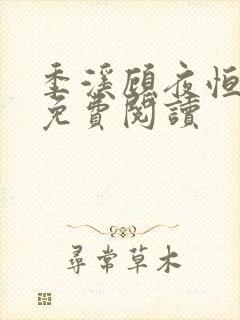 季溪顧夜恒
免費閱讀
尋常草木